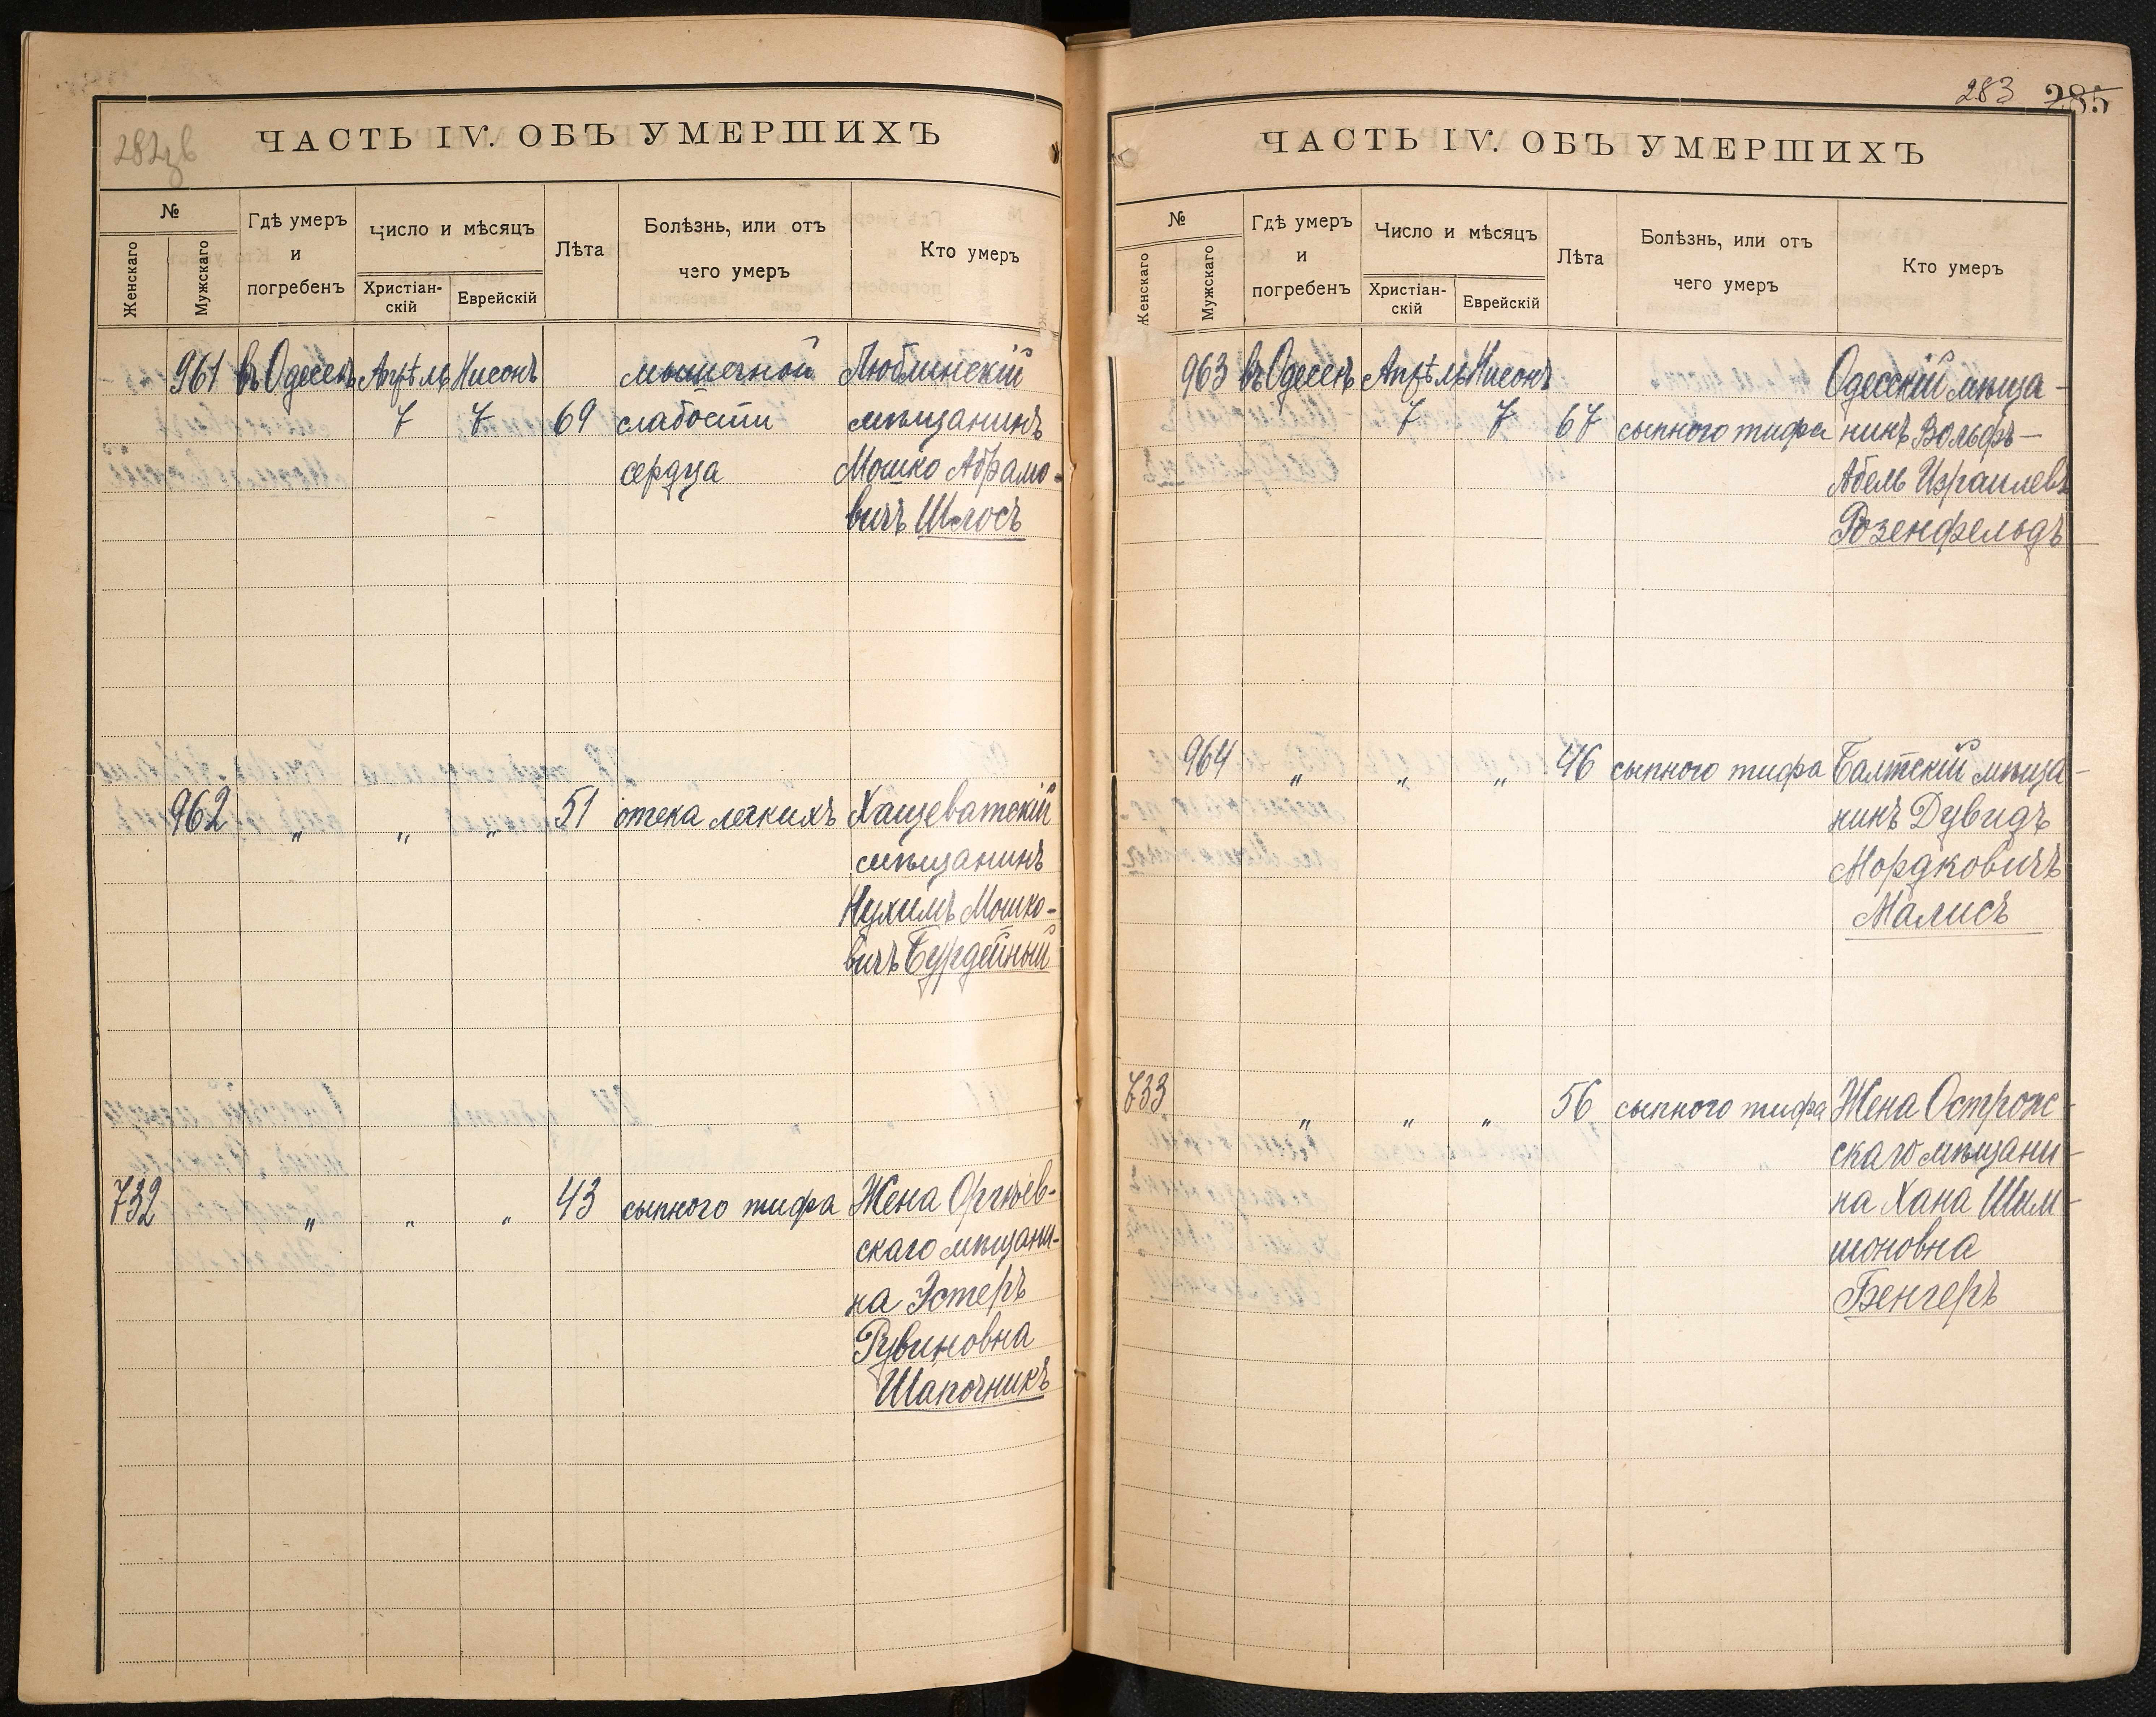 282зв
ЧАСТЬ IV. ОБЪ УМЕРШИХЪ
№
Женскаго
Мужскаго
Гдѣ умеръ
и
погребенъ
Число и мѣсяцъ
Христіан-
скій
Еврейскій
Лѣта
Болѣзнь, или отъ
чего умеръ
Кто умеръ
961 въ Одессѣ Апрѣль Нисонъ мышечной Люблинскій
7 7 69 слабости мѣщанинъ
сердца Мошко Абрамо-
вичъ Шлосъ
962 " " " 51 отека легкихъ Хащеватскій
мѣщанинъ
Нухимъ Мошко-
вичъ Бурдейный
732 " " " 43 сыпного тифа Жена Оргѣев-
скаго мѣщани-
на Эстеръ
Рувиновна
Шапочникъ
283 285
ЧАСТЬ IV. ОБЪ УМЕРШИХЪ
№
Женскаго
Мужскаго
Гдѣ умеръ
и
погребенъ
Число и мѣсяцъ
Христіан-
скій
Еврейскій
Лѣта
Болѣзнь, или отъ
чего умеръ
Кто умеръ
963 въ Одессѣ Апрѣль Нисонъ Одесскій мѣща-
7 7 67 сыпного тифа нинъ Вольфъ-
Абель Израилевъ
Розенфельдъ
964 " " " 46 сыпного тифа Балтскій мѣща-
нинъ Дувидъ
Мордковичъ
Малисъ
733 " " " 56 сыпного тифа Жена Острож-
скаго мѣщани-
на Хана Шим-
шоновна
Бенгеръ